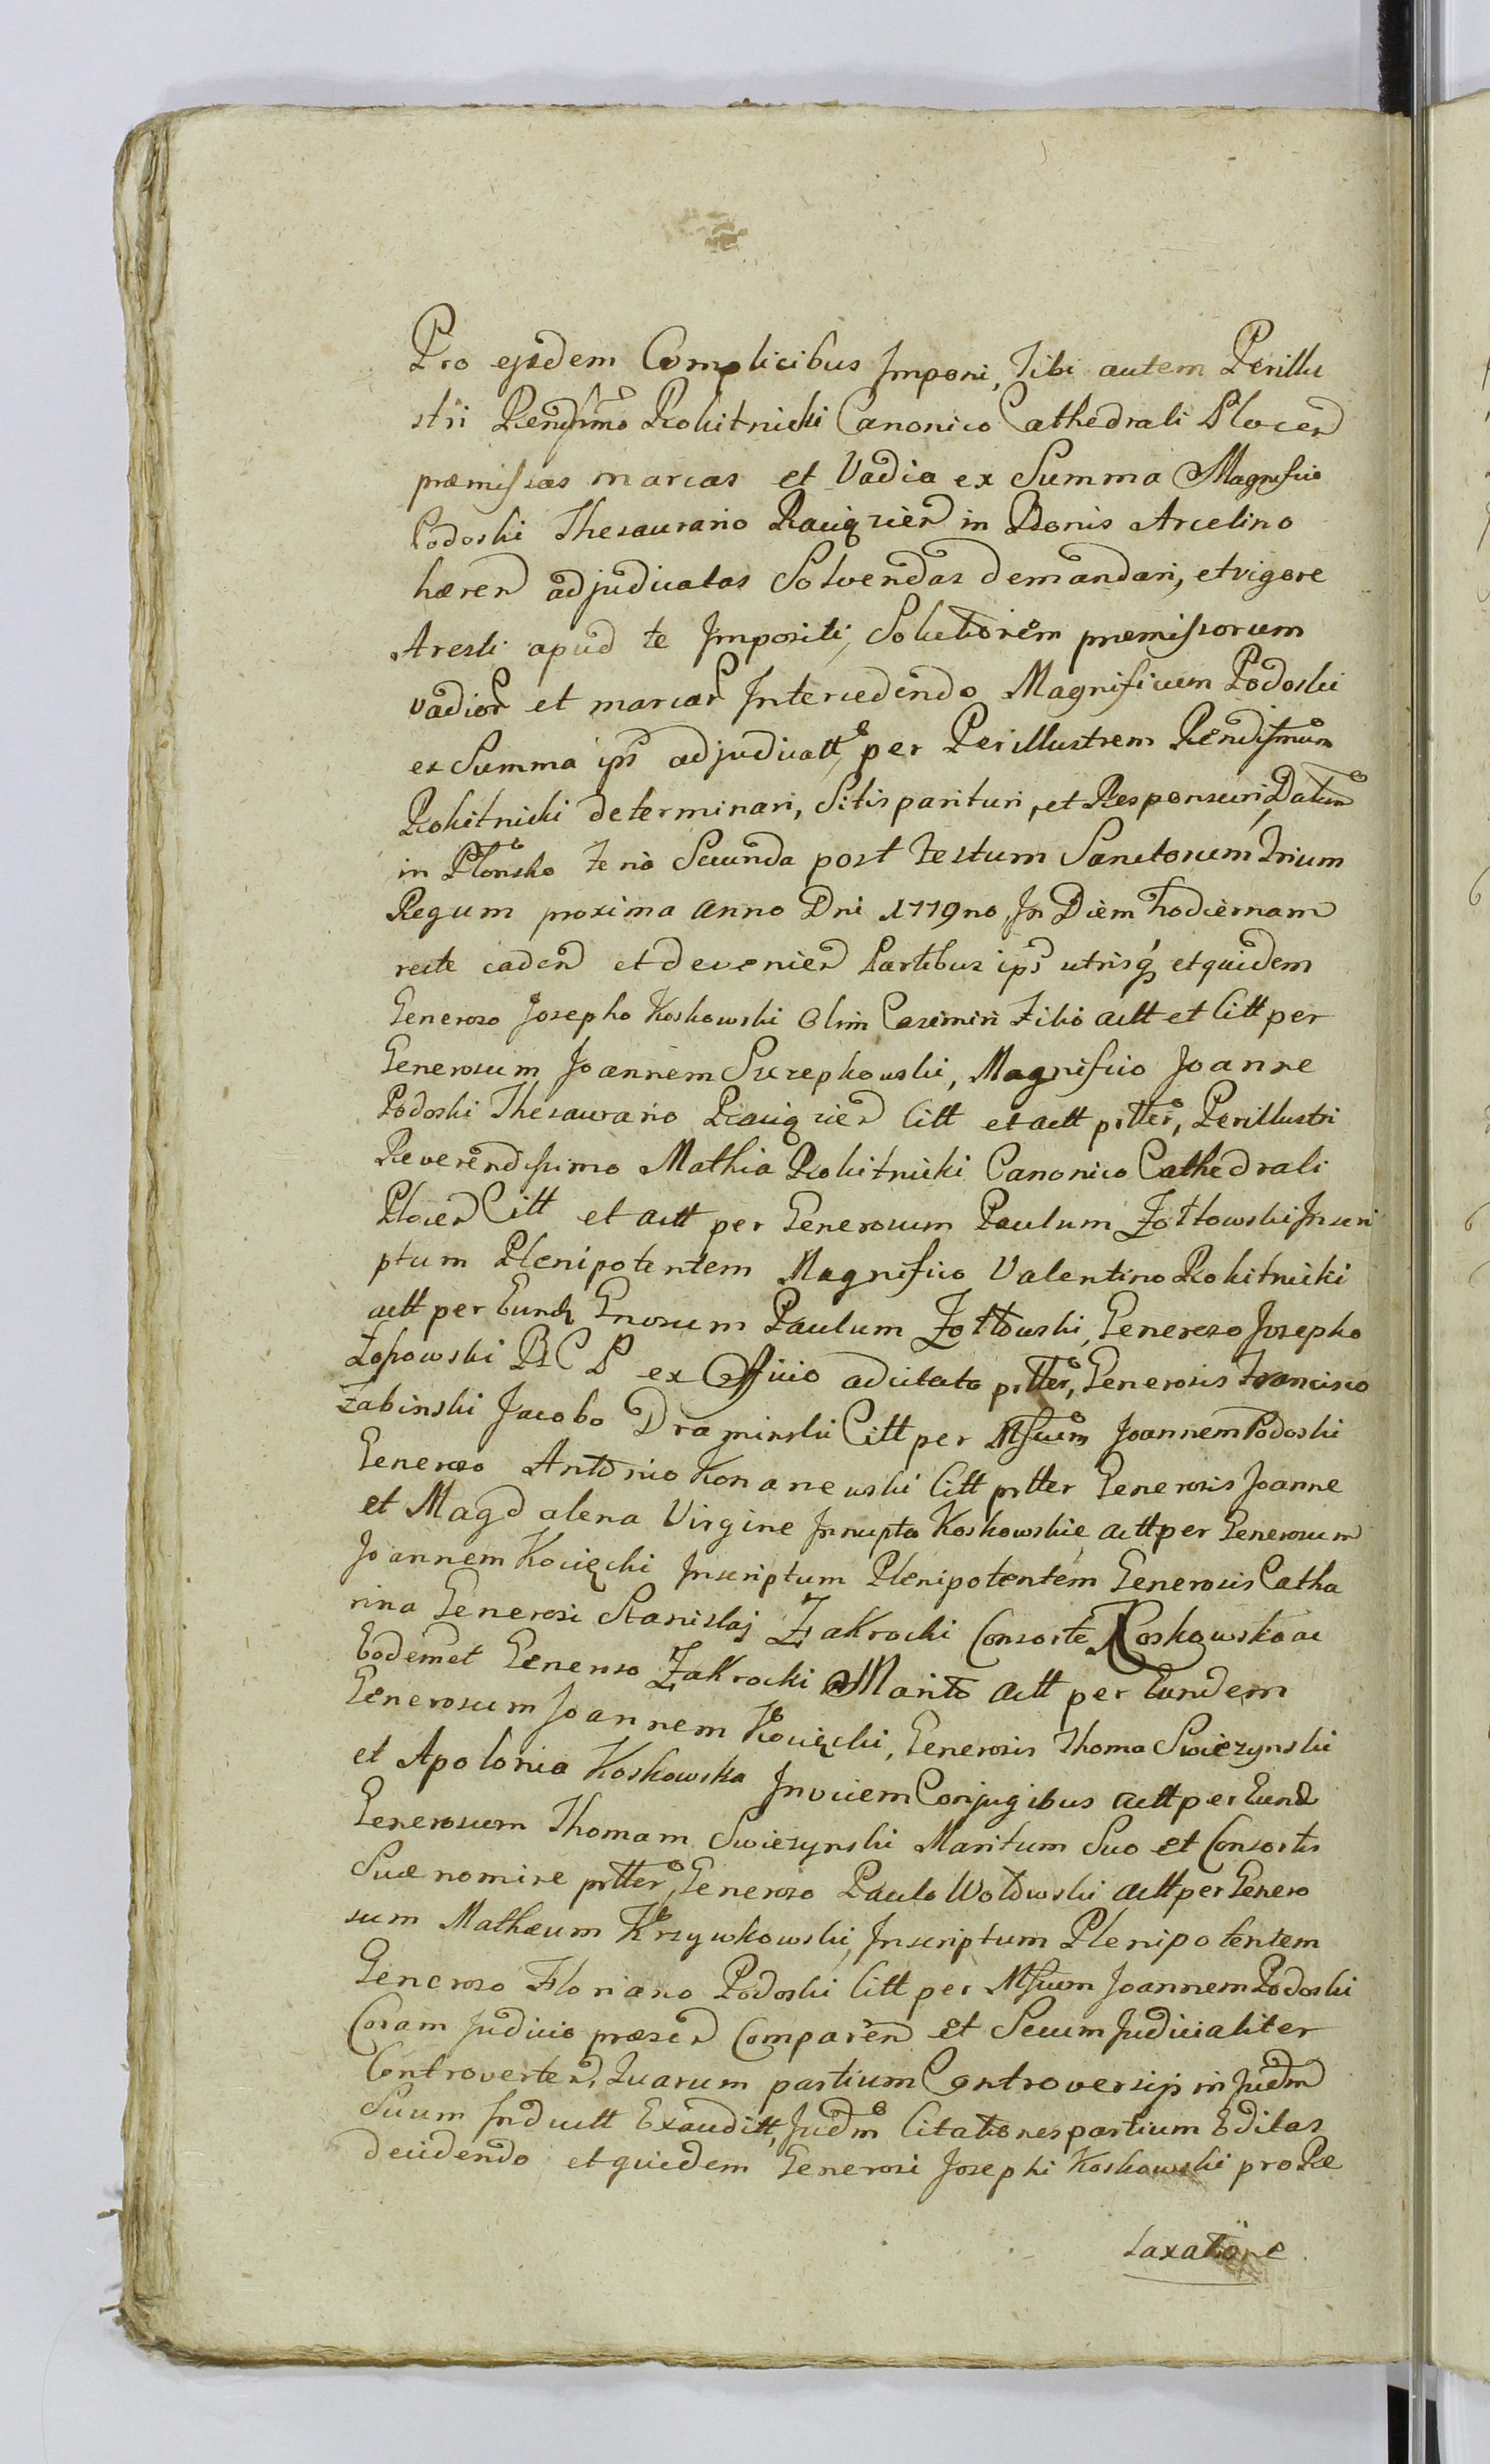 Pro ejsdem Complicibus Imponi, Tibi autem Perillu
stri Rendssimo Rokitnicki Canonico Cathedrali Plocen
præmissas marcas et Vadia ex Summa Magnifico
Podoski Thesaurario Raciązien in Bonis Arcelino
hæren adjudicatas Solvendas demandari, et vigore
Aresti apud te Impositi, Solutionem præmissorum
vadior et marcar Intercedendo Magnificum Podoski
ex Summa ips adjudicatt per Perillustrem Rendissimum
Rokitnicki determinari, Sitis parituri, et Responsuri, Datum
in Płonsko Feria Secunda post Festum Sanctorum Trium
Regum proxima Anno Dni 1779no, In Diem hodiernam
recte caden et devenien Partibus ips utrisq et quidem
Generoso Josepho Koskowski Olim Casimiri Filio actt et Citt per
Generosum Joannem Szczepkowski, Magnifico Joanne
Podoski Thesaurario Raciązien Citt et actt prtter, Perillustri
Reverendissimo Mathia Rokitnicki Canonico Cathedrali
Plocen Citt et actt per Generosum Paulum Zołtowski Inscri
ptum Plenipotentem Magnifico Valentino Rokitnicki
actt per Eund Gnosum Paulum Zołtowski, Generoso Josepho
Łopowski B C P ex Officio adcitato prtter, Generosis Francisco
Zabinski Jacobo Draminski Citt per Mficum Joannem Podoski
Generoso Antonio Konanewski Citt prtter Generosis Joanne
et Magdalena Virgine Innupta Koskowskie actt per Generosum
Joannem Kocięcki Inscriptum Plenipotentem Generosis Catha
rina Generosi Stanislaj Zakrocki Consorte Koskowska ac
Eodemet Generoso Zakrocki Marito actt per Eundem
Generosum Joannem Kocięcki, Generosis Thoma Swiezynski
et Apolonia Koskowska Invicem Conjugibus actt per Eund
Generosum Thomam Swiezynski Maritum Suo et Consortis
Suæ nomine prtter, Generoso Paulo Wołowski actt per Genero
sum Mathæum Krzywkowski, Inscriptum Plenipotentem
Generoso Floriano Podoski Citt per Mficum Joannem Podoski
Coram Judicio præsen Comparen et Secum Judicialiter
Controverten, Quarum partium Controversijs in Judm
Suum Inductt Exauditt, Judm Citationes partium Editas
decidendo et quidem Generosi Josephi Koskowski pro Re
laxatione